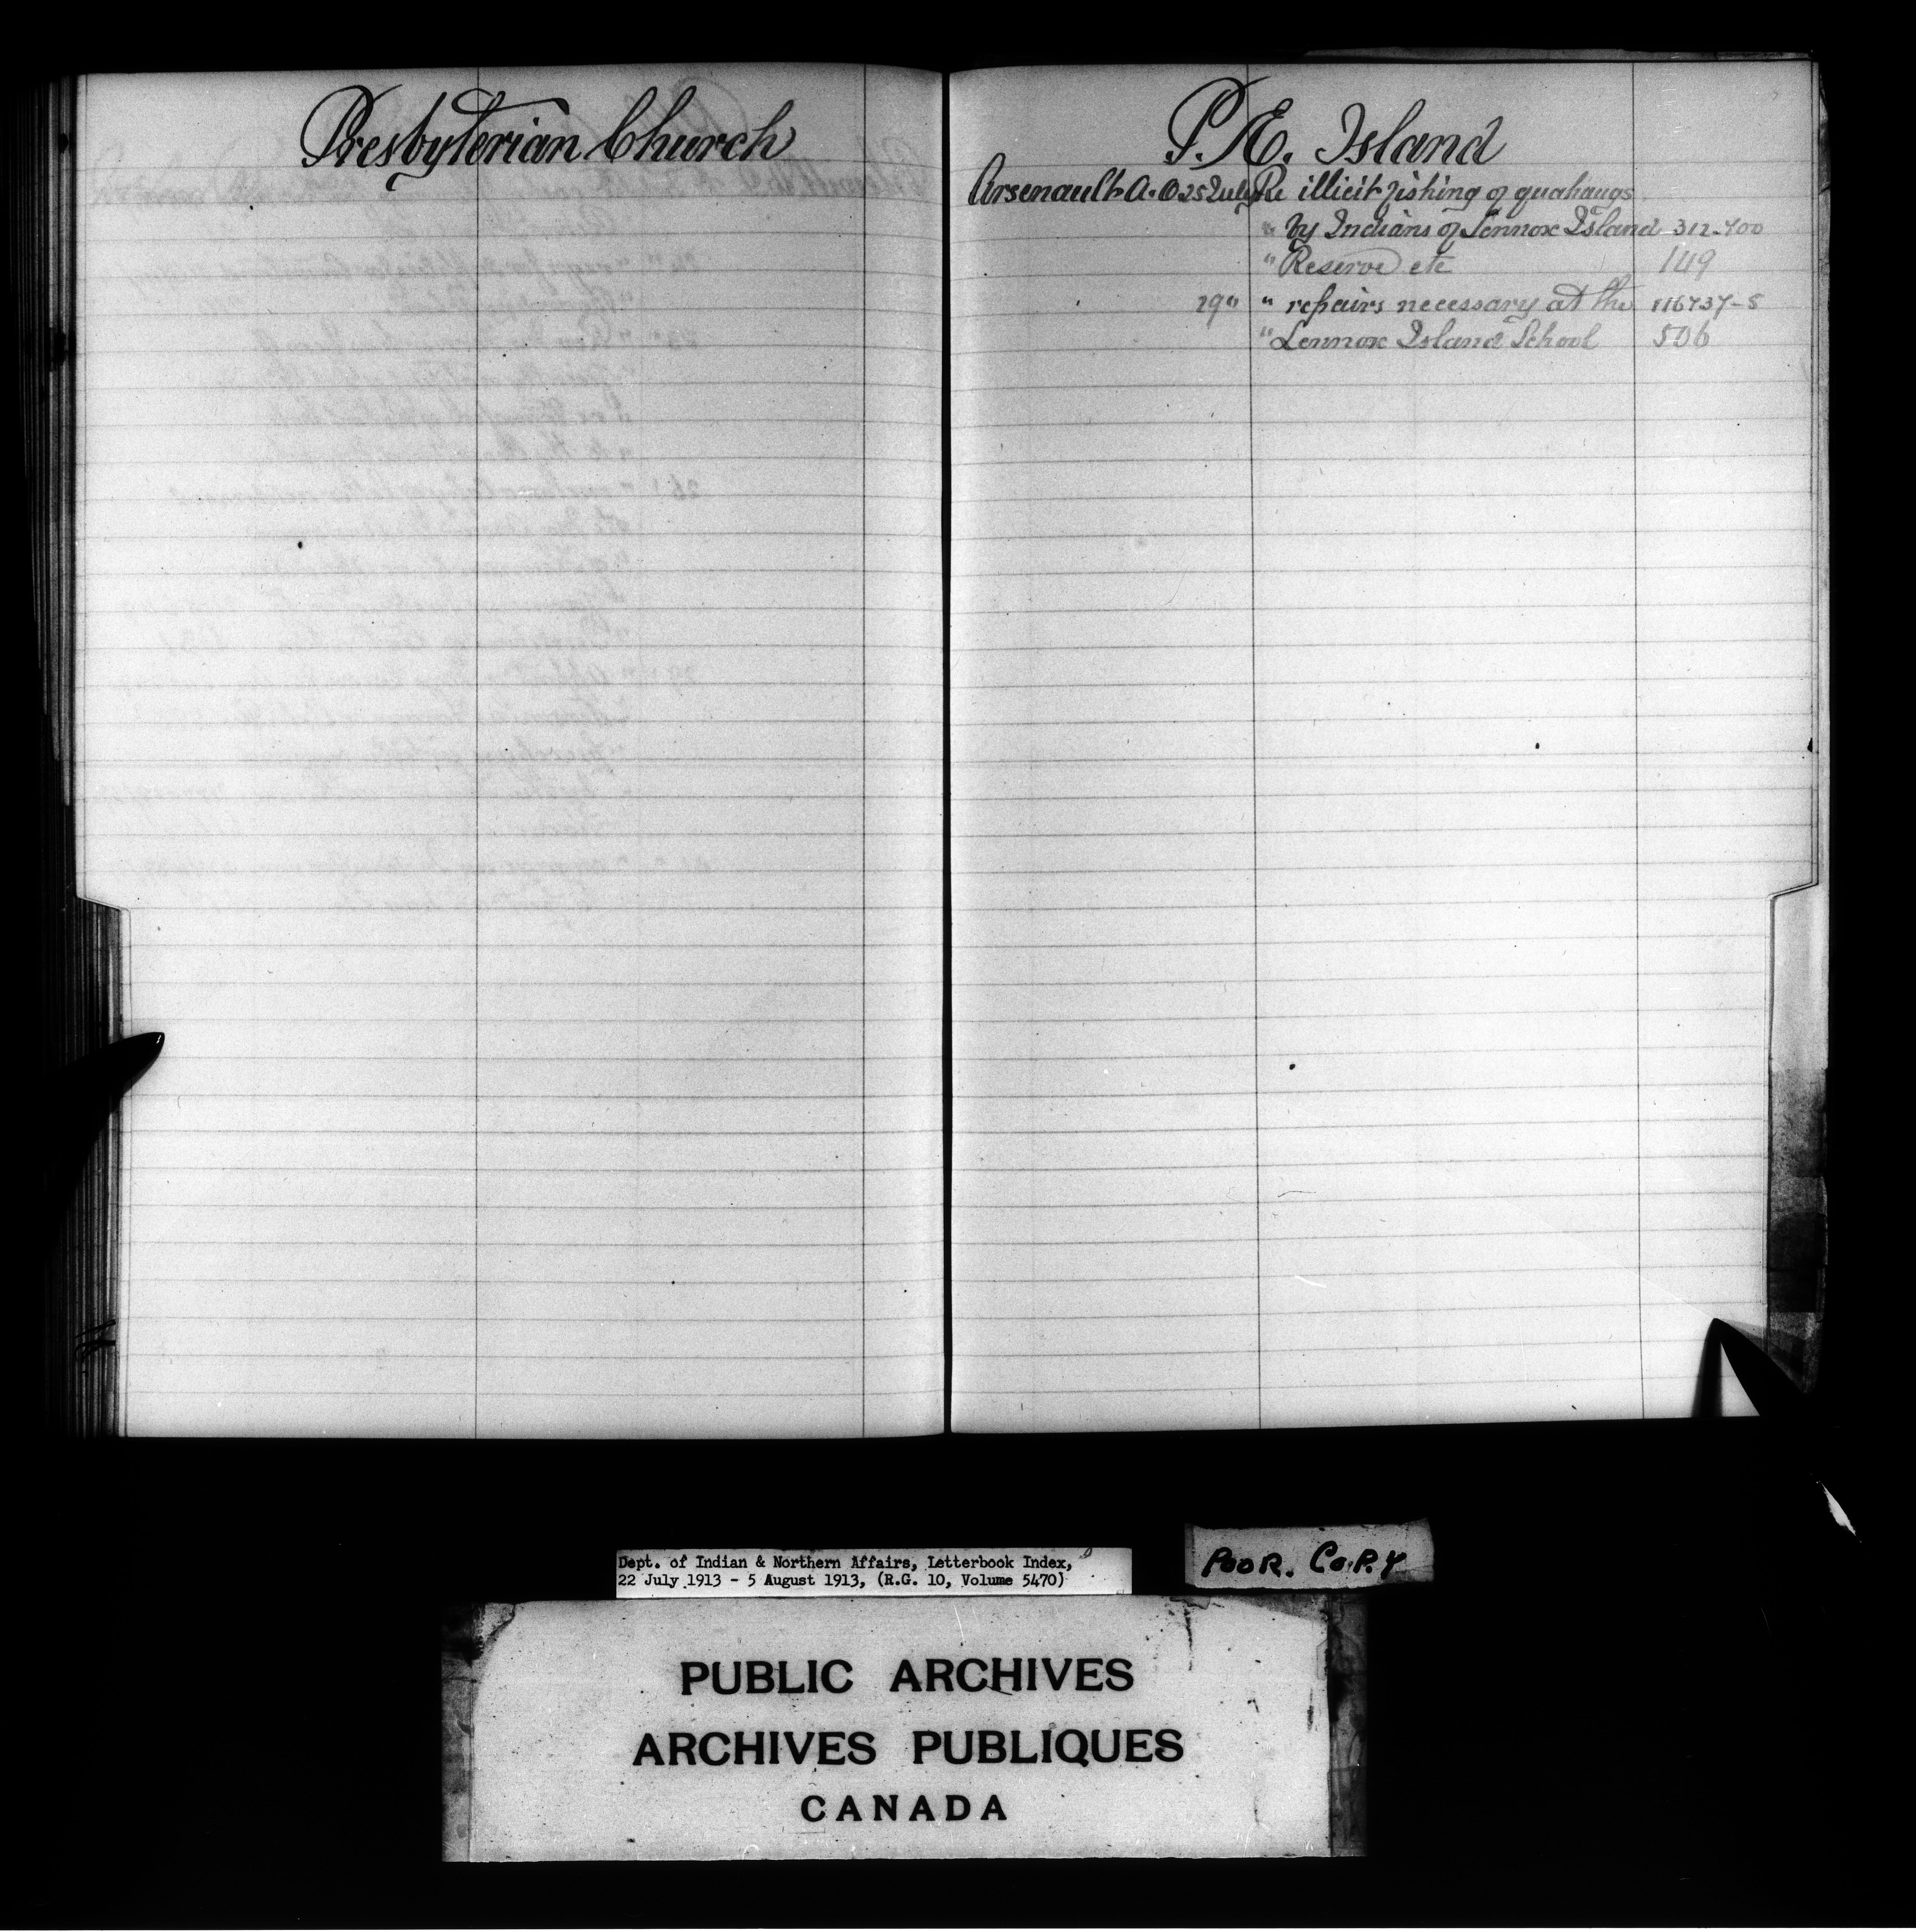 Presbyterian Church
P. E. Island
Arsenault A. O. 25 July Re illicit fishing of quahaugs
" by Indians of Lennox Island 312-400
" Reserve etc 149
29 " " repairs necessary at the 116737-5
" Lennox Island School 506
Dept. of Indian & Northern Affairs, Letterbook Index,
22 July 1913 - 5 August 1913, (R.G. 10, Volume 5470)
POOR. COPY
PUBLIC ARCHIVES
ARCHIVES PUBLIQUES
CANADA